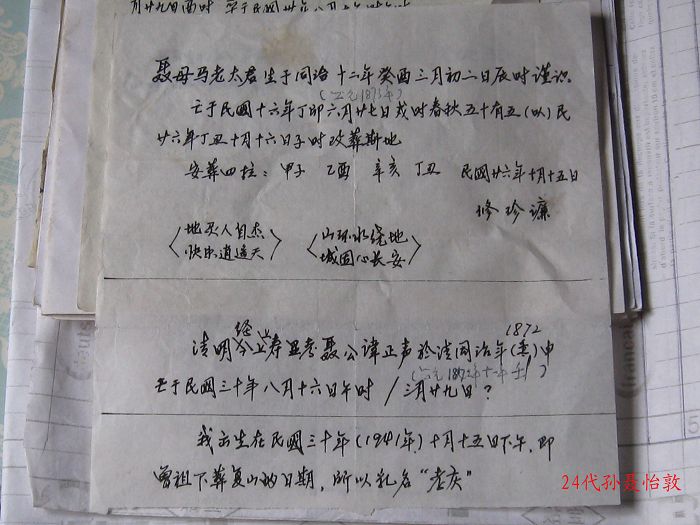 月廿九日酉时 卒于民國廿年八月
聂母马老太君生于同治十二年癸酉三月初二日辰时谨识
(公元1873年)
亡于民國十六年丁卯六月廿七日戌时春秋五十有五(以)民
廿六年丁丑十月十六日子时改葬斯地
安葬四柱: 甲子 乙酉 辛亥 丁丑 民國廿六年十月十五日
修珍谦
地灵人自杰
快乐逍遥天
山环水绕地
城固心长安
清明 经 寿显考聂公諱正声於清同治年(壬)申
1872
(公元1872年十一年壬)
亡于民國三十年八月十六日午时 / 三月廿九日?
我出生在民國三十年(1941年)十月十五日下午,即
曾祖下葬复山的日期,所以乳名"老灰"
24代孙聂怡敦